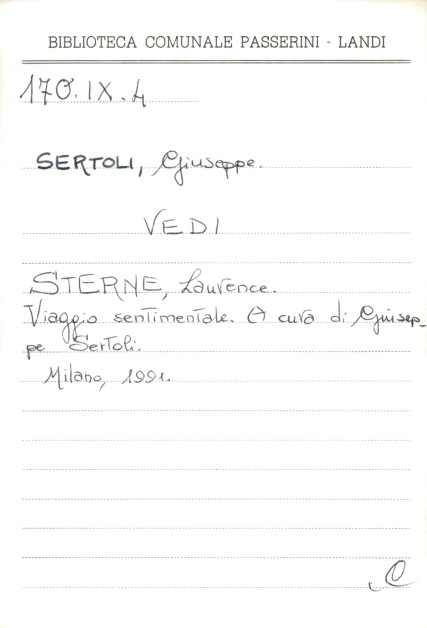 BIBLIOTECA COMUNALE PASSERINI - LANDI
170.IX.4
SERTOLI, Giuseppe.
VEDI
STERNE, Laurence.
Viaggio sentimentale. A cura di Giusep-
pe Sertoli.
Milano, 1991.